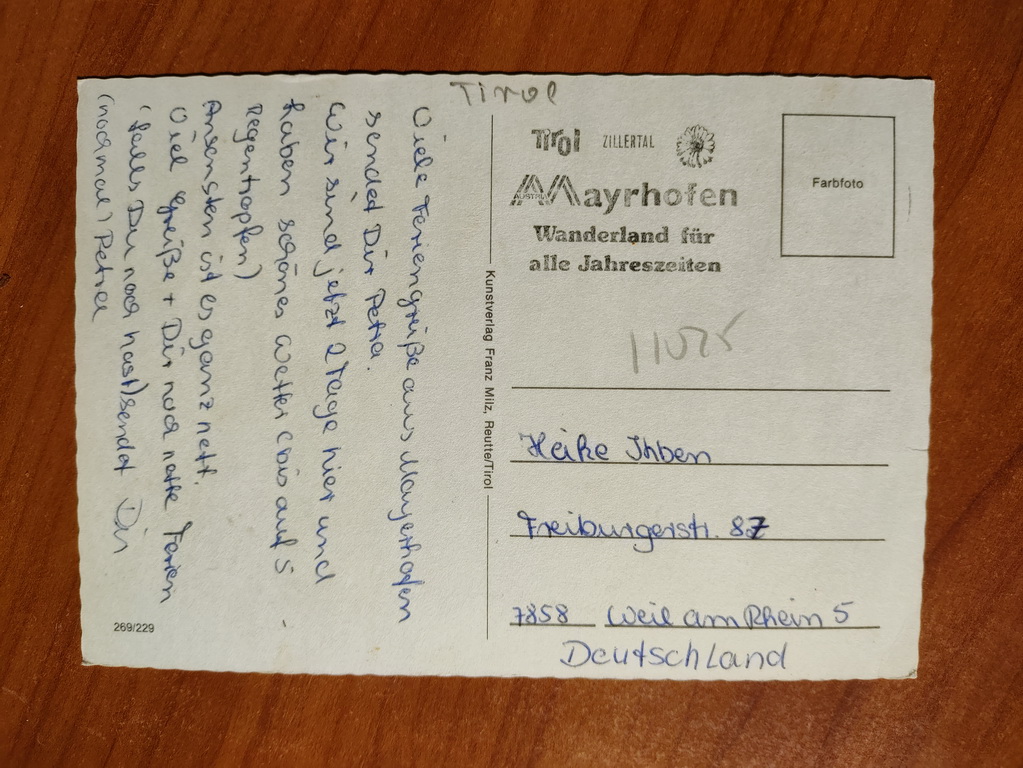 Tirol
Viele Feriengrüße aus Mayerhofen
sended Dir Petra.
Wir sind jetzt 2 Tage hier und
haben schönes Wetter (bis auf 5
Regentropfen)
Ansonsten ist es ganz nett.
Viel Grüße + Dir noch nette Ferien
(falls Du noch hast) sendet Dir
(nochmal) Petra
269/229
Kunstverlag Franz Milz, Reutte/Tirol
Tirol ZILLERTAL
AUSTRIA
Mayrhofen
Wanderland für
alle Jahreszeiten
Farbfoto
11025
Heike Ihben
Freiburgerstr. 87
7858 Weil am Rhein 5
Deutschland